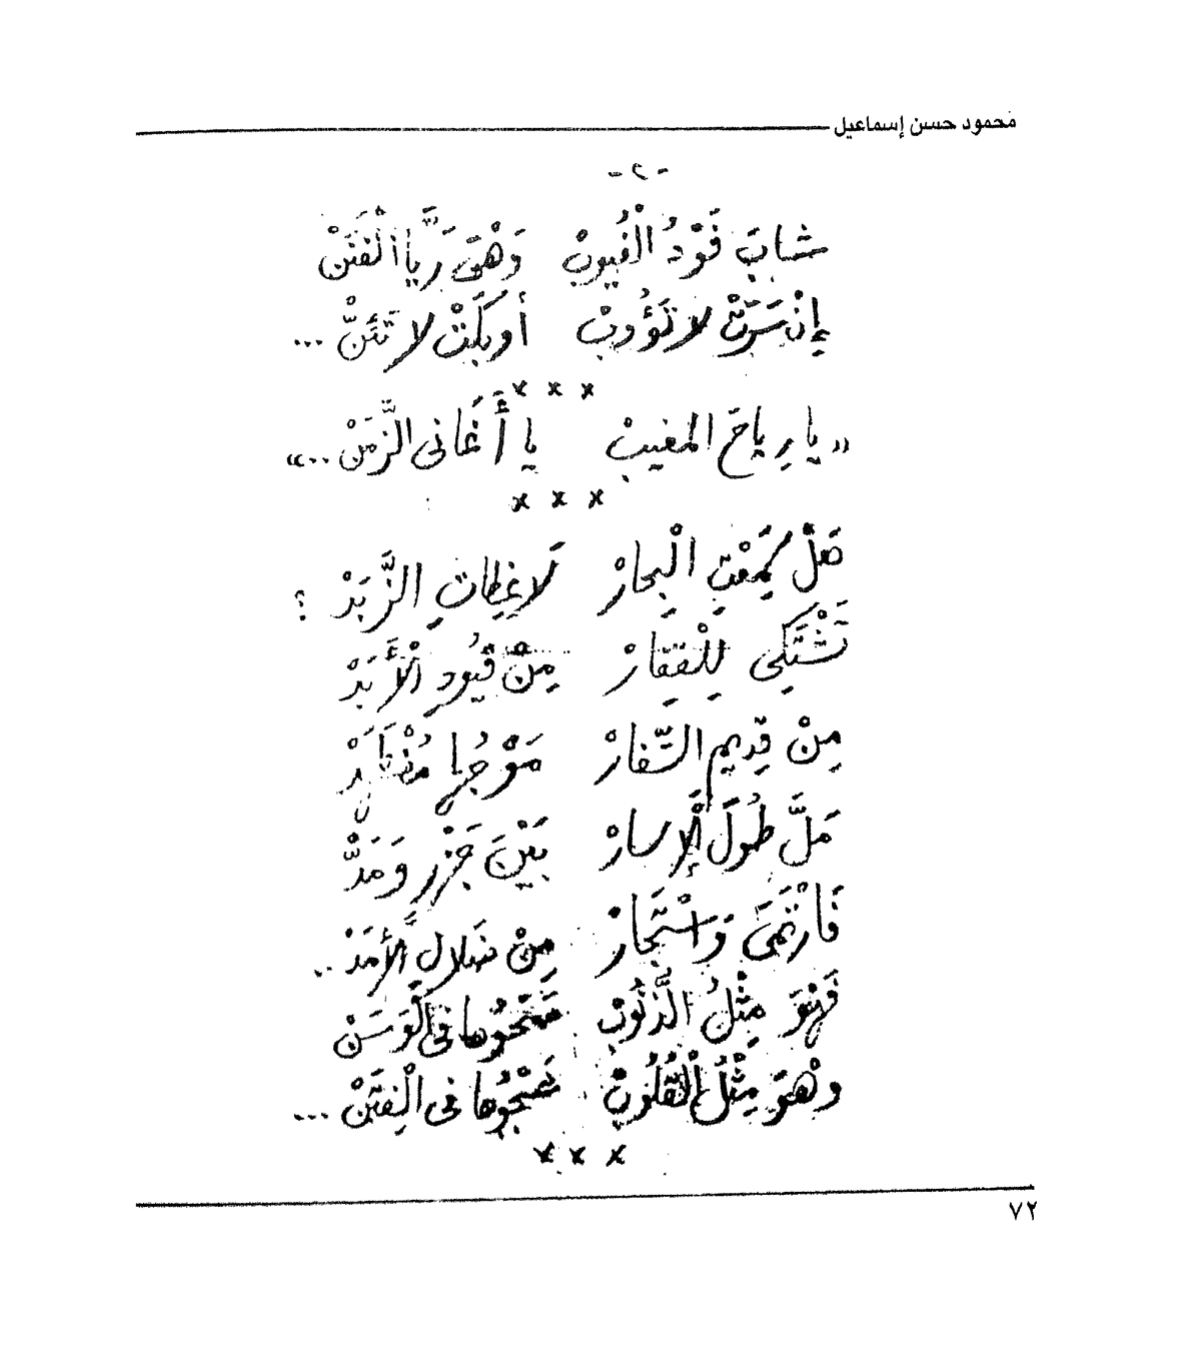 محمود حسن إسماعيل
-٢-
شابَ فَوْدُ الْغُيوبْ    وَهْىَ رَيَّا الْفَنَنْ
إِنْ سَرَتْ لا تَؤُوبْ    أو بَكَتْ لا تَئِنّْ ...
× × ×
«يا رِياحَ المغيبْ    يا أَغَانى الزَّمَنْ ...»
× × ×
هَلْ سَمِعْتِ الْبِحارْ    لاغِطاتِ الزَّبَدْ ؟
تَشْتَكِى لِلْقِفارْ    مِنْ قُيُودِ الْأَبَدْ
مِنْ قِدِيمِ السِّفارْ    مَوْجُها
مَلَّ طُولَ الْإِسارْ    بَيْنَ جَزْرٍ وَمَدّْ
فَارْتَمَى وَاسْتَجارْ    مِنْ ضَلالِ الأَمَدْ ..
فَهْوَ مِثْلُ الذُّنُوبْ    فى الْوَسَنْ
وهْوَ مِثْلُ الْقُلُوبْ    فى الْفِتَنْ ...
× × ×
٧٢